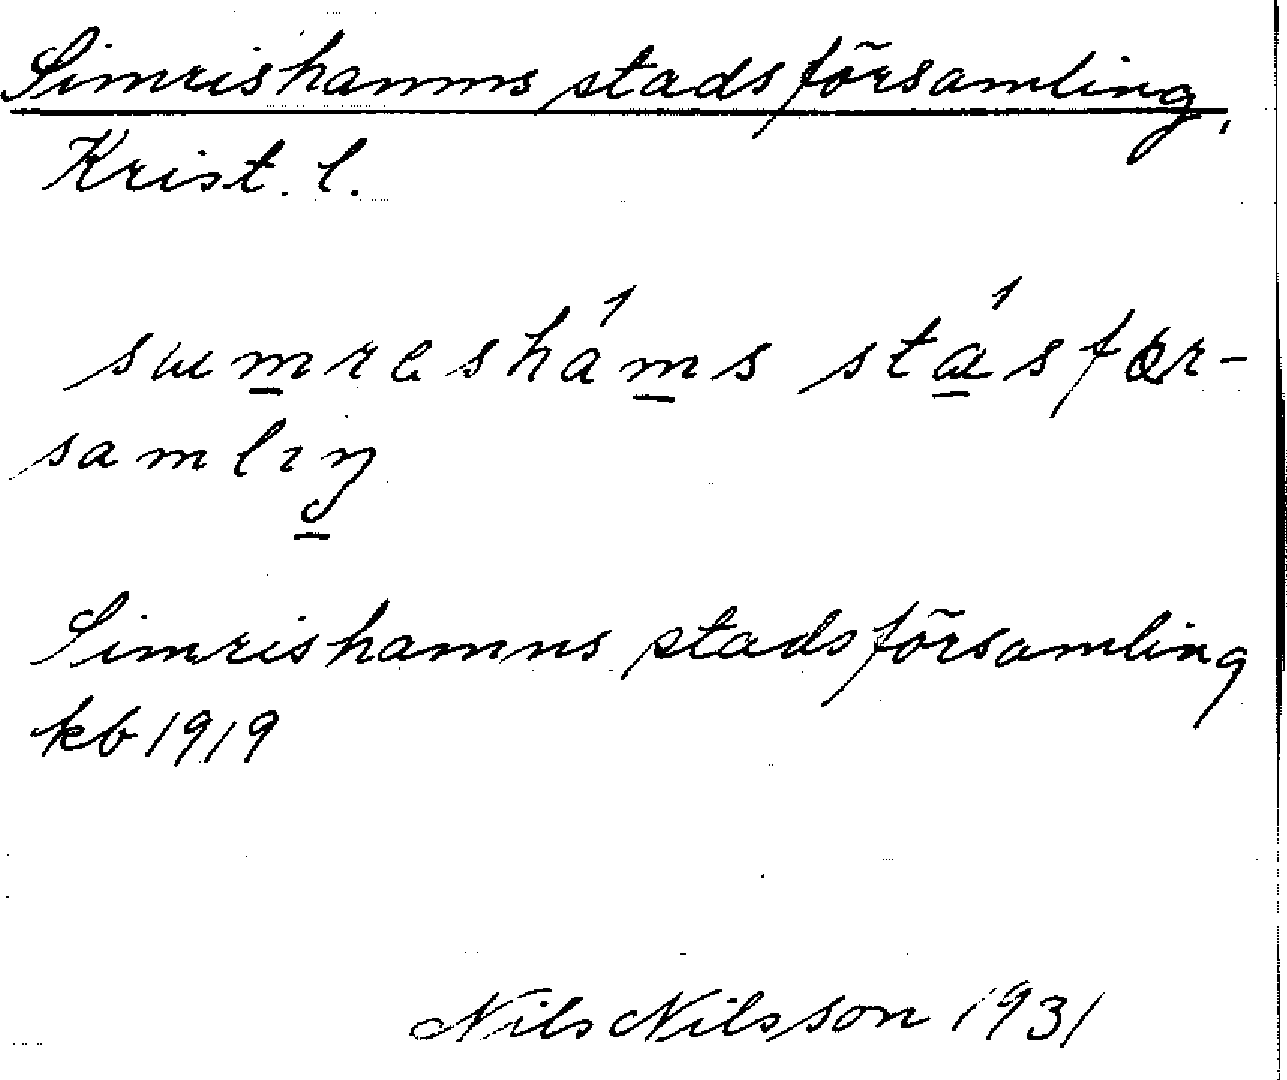 Simrishamns stadsförsamling,
Krist. l.
Simrishamns stadsförsamling
kb 1919
Nils Nilsson 1931